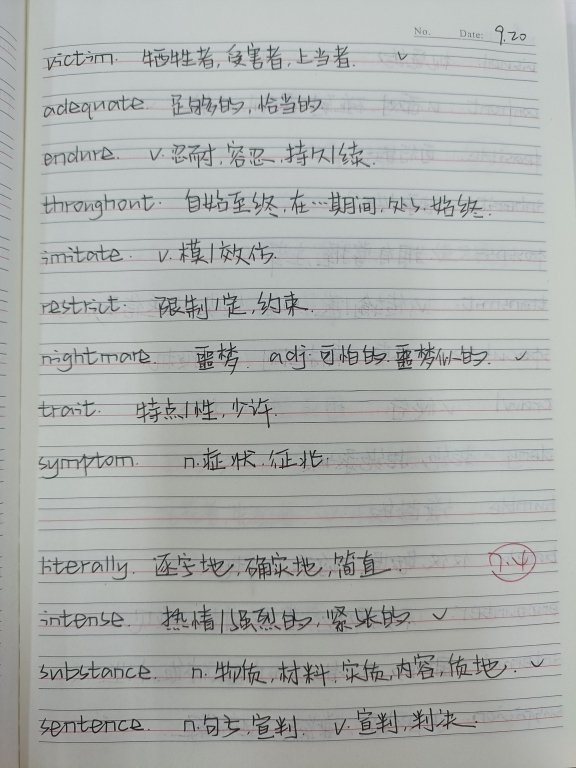 No. Date: 9.20
victim. 牺牲者,受害者,上当者. ✓
adequate. 足够的,恰当的
endure. v.忍耐,容忍,持久/续.
throughout. 自始至终,在…期间,处处,始终.
imitate. v.模/效仿.
restrict. 限制/定,约束.
nightmare. 噩梦. adj.可怕的.噩梦似的. ✓
trait. 特点/性,少许.
symptom. n.症状.征兆.
literally. 逐字地,确实地,简直. 7.4
intense. 热情/强烈的,紧张的. ✓
substance. n.物质,材料,实质,内容,质地. ✓
sentence. n.句子,宣判. v.宣判,判决.